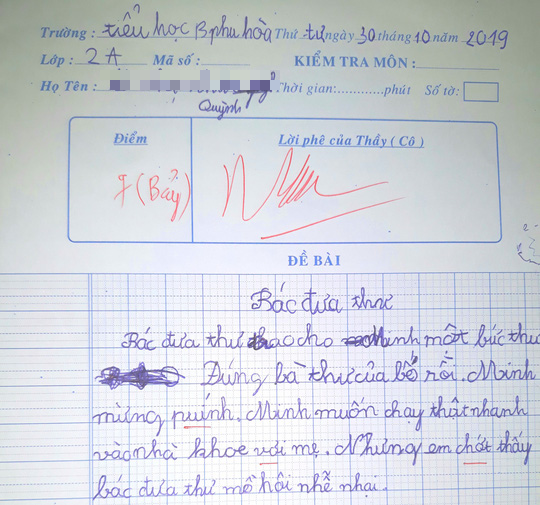 Trường : tiểu học B phu hòa Thứ tư ngày 30 tháng 10 năm 2019
Lớp : 2A Mã số : KIỂM TRA MÔN :
Họ Tên : Thời gian:............phút Số tờ:
Quỳnh
Điểm Lời phê của Thầy ( Cô )
7 (Bảy)
ĐỀ BÀI
Bác đưa thư
Bác đưa thư trao cho minh một bức thư
Đúng bà thư của bố rồi. Minh
mừng puính. Minh muốn chạy thật nhanh
vào nhà khoe vơi mẹ. Nhưng em chót thấy
bác đưa thư mồ hôi nhễ nhại.